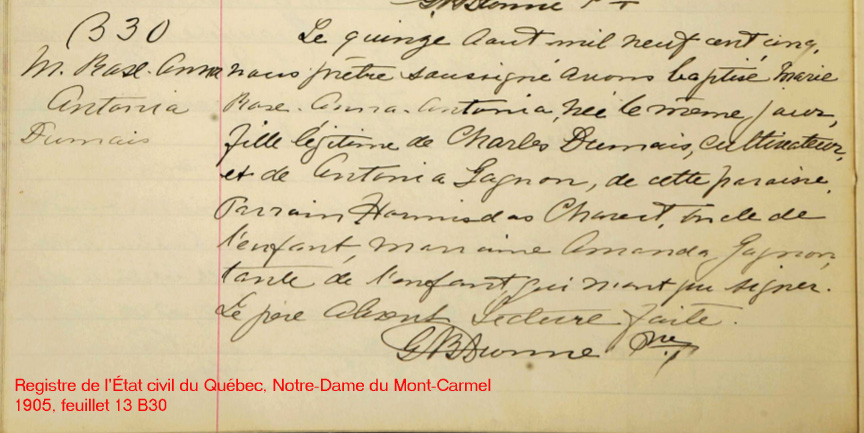 GBDionne Ptre
B30
M. Rose-Anna
Antonia
Dumais
Le quinze Aout mil neuf cent cinq,
nous prêtre soussigné avons baptisé Marie
Rose-Anna-Antonia, née le même jour,
fille légitime de Charles Dumais, cultivateur,
et de Antonia Gagnon, de cette paroisse.
Parrain Hormisdas Charest, oncle de
l'enfant, Marraine Amanda Gagnon,
tante de l'enfant, qui n'ont pu signer.
Le père absent. Lecture faite.
GBDionne Ptre
Registre de l'État civil du Québec, Notre-Dame du Mont-Carmel
1905, feuillet 13 B30